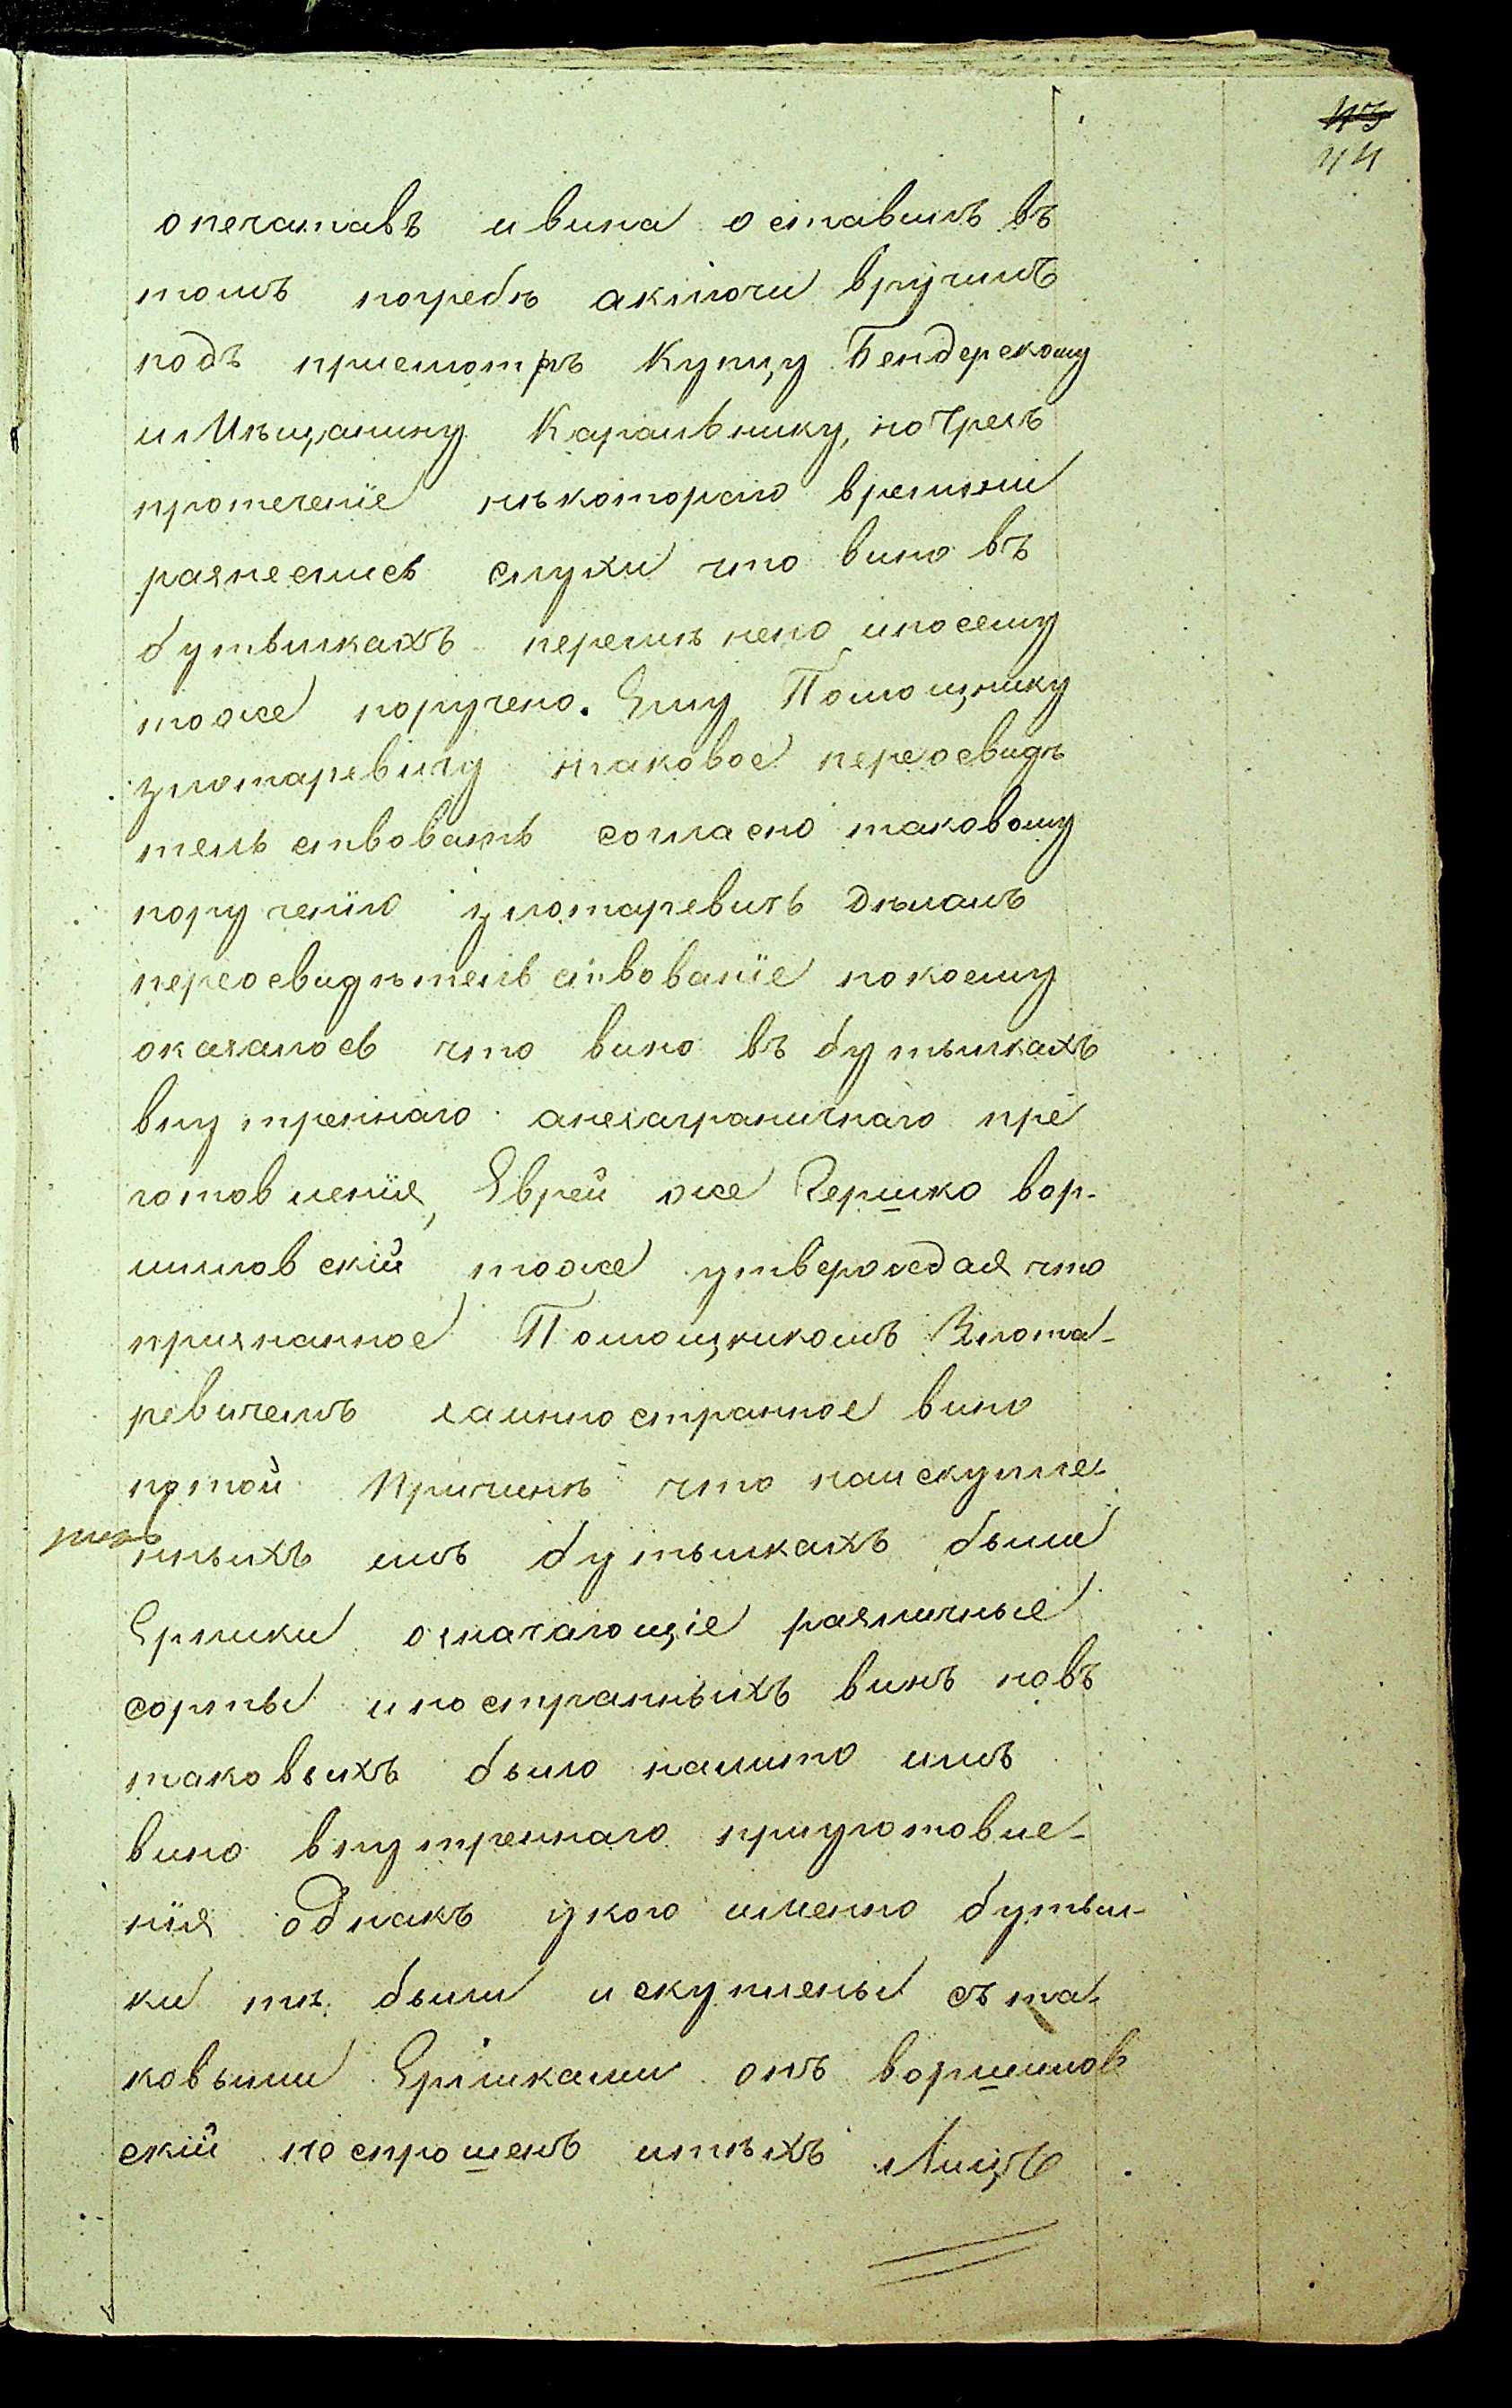 43
44
опечатавъ ивина оставилъ въ
томъ погребѣ аключи вручилъ
подъ присмотръ Купцу Бендерскому
иМѣщанину Каральнику, ночрезъ
протеченіе нѣкотораго времяни
разнеслись слухи что вино въ
бутылкахъ перемѣнено ипосему
тоже поручено. Ему Помощнику
злотаревичу таковое переосвидѣ
тельствовать согласно таковому
порученію злотаревичь дѣлалъ
переосвидѣтельствованіе покоему
оказалось что вино въ бутылкахъ
внутреннаго анезаграничнаго пре
готовленія, Еврей же Гершко вор-
шиловскій тоже утверждая что
признанное Помощникомъ Злота-
ревичемъ заиностранное вино
потой Причинѣ что наискупле-
нныхъ имъ бутылкахъ были
Ерлики означающіе различные
сорты иностранныхъ винъ новъ
таковыхъ было налито имъ
вино внутреннаго приуготовле-
нія однакъ укого именно бутыл-
ки тѣ были искуплены съ та-
ковыми Ерликами онъ воршилов
скій неспрошенъ итѣхъ Лицъ